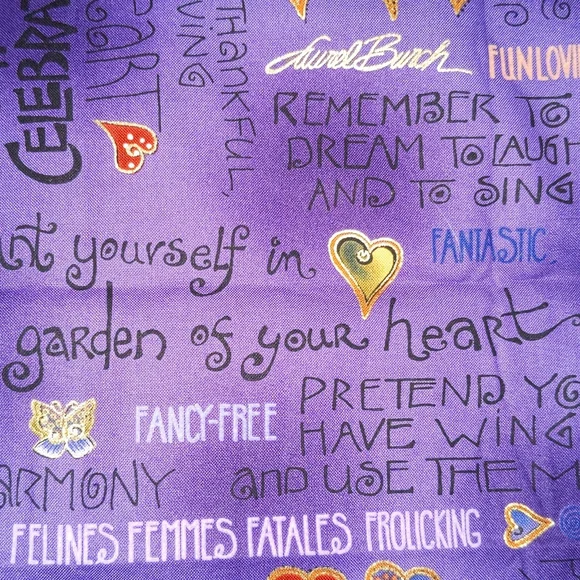 CELEBRA
ART
VING
THANKFUL
Laurel Burch
FUNLOVI
REMEMBER TO
DREAM TO LAUGH
AND TO SING
nt yourself in
FANTASTIC
garden of your heart
FANCY-FREE
PRETEND YO
HAVE WING
ARMONY
and USE THEM
FELINES FEMMES FATALES FROLICKING